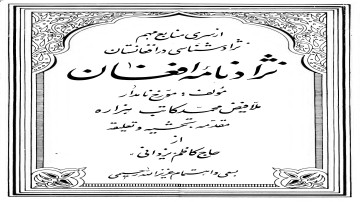 از سری منابع مهم
نژادشناسی در افغانستان
نژادنامه افغان
مؤلف: مورخ نامدار
ملا فیض محمد کاتب هزاره
مقدمه، تحشیه و تعلیقه
از
حاج کاظم یزدانی
بسعی و اهتمام عزیزالله رحیمی